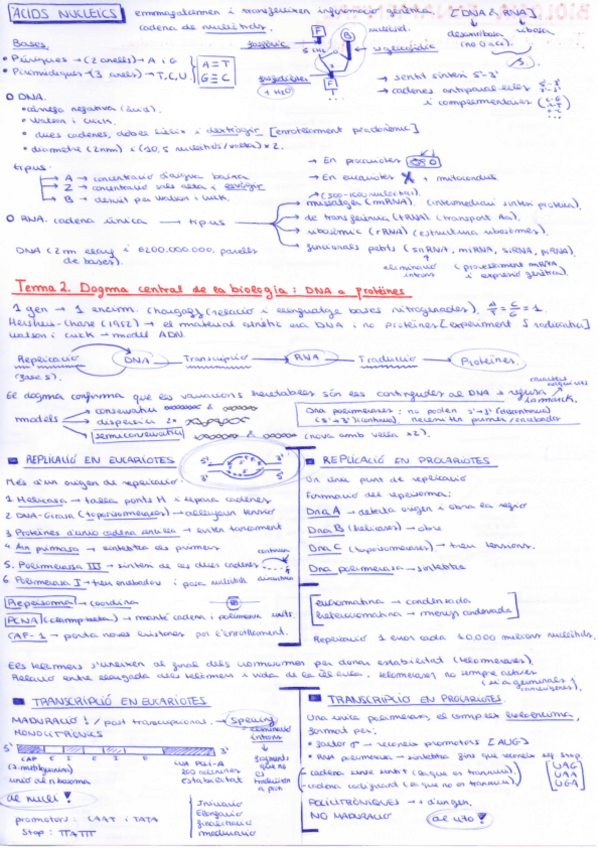 ÀCIDS NUCLEICS
emmagatzemen i transfereixen informació genètica [DNA & RNA]
cadena de nucleòtids.
ribosa
(no O a C2).
Bases
• Púriques → (2 anells) → A i G
• Pirimidíniques → (3 anells) → T, C, U
A = T
G ≡ C
N-glicosídic
+ H2O
→ sentit síntesi 5'-3'
→ cadenes antiparal·leles
i complementàries
O DNA.
• càrrega negativa (àcid).
• Watson i Crick.
• dues cadenes, doble hèlix i dextrogir
• diàmetre (2nm) i (10,5 nucleòtids/volta) × 2.
tipus
A → concentració d'aigua baixa
Z → concentració sals alta i
B → descrit per Watson i Crick.
→ En procariotes
→ En eucariotes X + mitocondris
O RNA. cadena única → tipus
missatger (mRNA). (intermediari síntesi proteïna).
de transferència (tRNA) (transport Aa).
ribosòmic (rRNA) (estructura ribosomes).
funcionals petits (snRNA, miRNA, siRNA, piRNA).
eliminació introns
i expressió genètica).
DNA (2 m llarg i 6200.000.000 parells
de bases).
Tema 2. Dogma central de la biologia: DNA a proteïnes
1 gen → 1 enzim. Chargaff (relació i llenguatge bases nitrogenades). A/T = C/G = 1.
Hershey-Chase (1952) → el material genètic era DNA i no proteïnes [experiment S radioactiu]
Watson i Crick → model ADN.
Replicació → DNA → Transcripció → RNA → Traducció → Proteïnes
(fase S).
El dogma confirma que les variacions heretables són les contingudes al DNA → refusa
Lamarck.
models
conservatiu
dispersiu
semiconservatiu
(nova amb vella x2).
DNA polimerases: no poden 3'→5' (discontinua)
REPLICACIÓ EN EUCARIOTES
Més d'un origen de replicació:
1 Helicasa → talla ponts H i separa cadenes
2 DNA-Girasa (topoisomerases) → alleugen tensió
3 Proteïnes d'unió cadena senzilla → eviten tancament
4 ARN primasa → sintetitza els primers
5. Polimerasa III → síntesi de les dues cadenes
6 Polimerasa I → treu encebadors i posa nucleòtids
Replisoma → coordina
PCNA (clamp beta) → manté cadena i polimerasa units.
CAF-1 → porta noves histones per l'enrotllament.
REPLICACIÓ EN PROCARIOTES
Un únic punt de replicació
Formació del replisoma:
DnaA → detecta origen i obra la regió
DnaB (helicasa) → obre
DnaC (topoisomerases) → treu tensions.
Dna polimerasa → sintetitza
eucromatina → condensada
heterocromatina → menys condensada
Replicació 1 error cada 10.000 milions nucleòtids.
Els telòmers s'uneixen al final dels cromosomes per donar estabilitat (telomerases).
Relació entre llargada dels telòmers i vida de la cèl·lula. Telomerases no sempre actives
TRANSCRIPCIÓ EN EUCARIOTES
MADURACIÓ 1 / post transcripcional. → Splicing
MONOCISTRÒNICS
eliminació
introns
fragments
que no
es
tradueixen
a prot.
5'
3'
CAP E I E I E
(7-metilguanina)
unió al ribosoma
CUA POLI-A
200 adenines
estabilitat
al nucli!
promotors: CAAT i TATA
Iniciació
Elongació
Finalització
maduració
TRANSCRIPCIÓ EN PROCARIOTES.
Una única polimerasa, el complex holoenzim,
format per:
• factor σ → reconeix promotors [AUG]
• RNA polimerasa → sintetitza fins que reconeix sq. stop.
UAG
UAA
UGA
- cadena sense sentit (la que es transcriu).
POLICISTRÒNIQUES → + d'un gen.
NO MADURACIÓ
al cito!